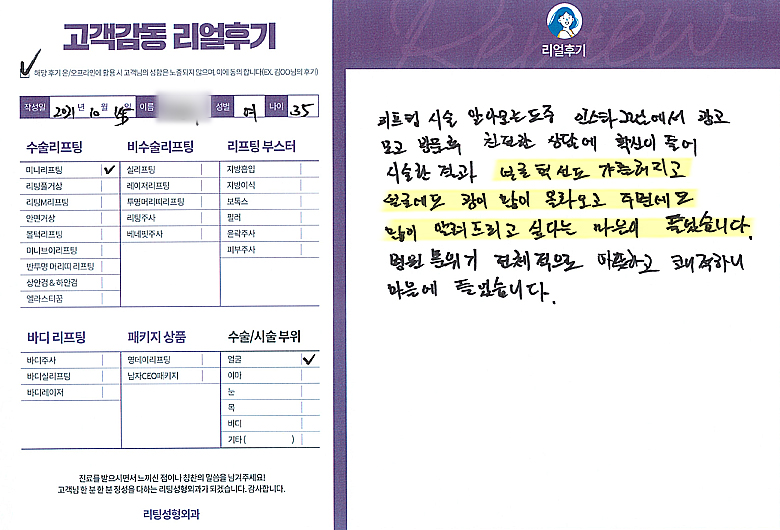 고객감동 리얼후기
해당 후기 온/오프라인에 활용 시 고객님의 성함은 노출되지 않으며, 이에 동의 합니다(EX. 김OO님의 후기)
작성일 2021년 10월 일 이름 성별 여 나이 35
수술리프팅
미니리프팅
리팅풀거상
리팅M리프팅
안면거상
볼턱리프팅
미니브이리프팅
반투명 머리띠 리프팅
상안검 & 하안검
엘라스티꿈
비수술리프팅
실리프팅
레이저리프팅
투명머리띠리프팅
리팅주사
베네핏주사
리프팅 부스터
지방흡입
지방이식
보톡스
필러
윤곽주사
피부주사
바디 리프팅
바디주사
바디실리프팅
바디레이저
패키지 상품
영데이리프팅
남자CEO패키지
수술/시술 부위
얼굴
이마
눈
목
바디
기타 ( )
진료를 받으시면서 느끼신 점이나 칭찬의 말씀을 남겨주세요!
고객님 한 분 한 분 정성을 다하는 리팅성형외과가 되겠습니다. 감사합니다.
리팅성형외과
Review
리얼후기
리프팅 시술 알아보는 도중 인스타그램에서 광고
보고 방문후 친절한 상담에 확신이 들어
시술한 결과 바로 턱선도 갸름해지고
얼굴에도 광이 많이 올라오고 주변에도
많이 알려드리고 싶다는 마음이 들었습니다.
병원 분위기 전체적으로 이쁘고 쾌적하니
마음에 들었습니다.